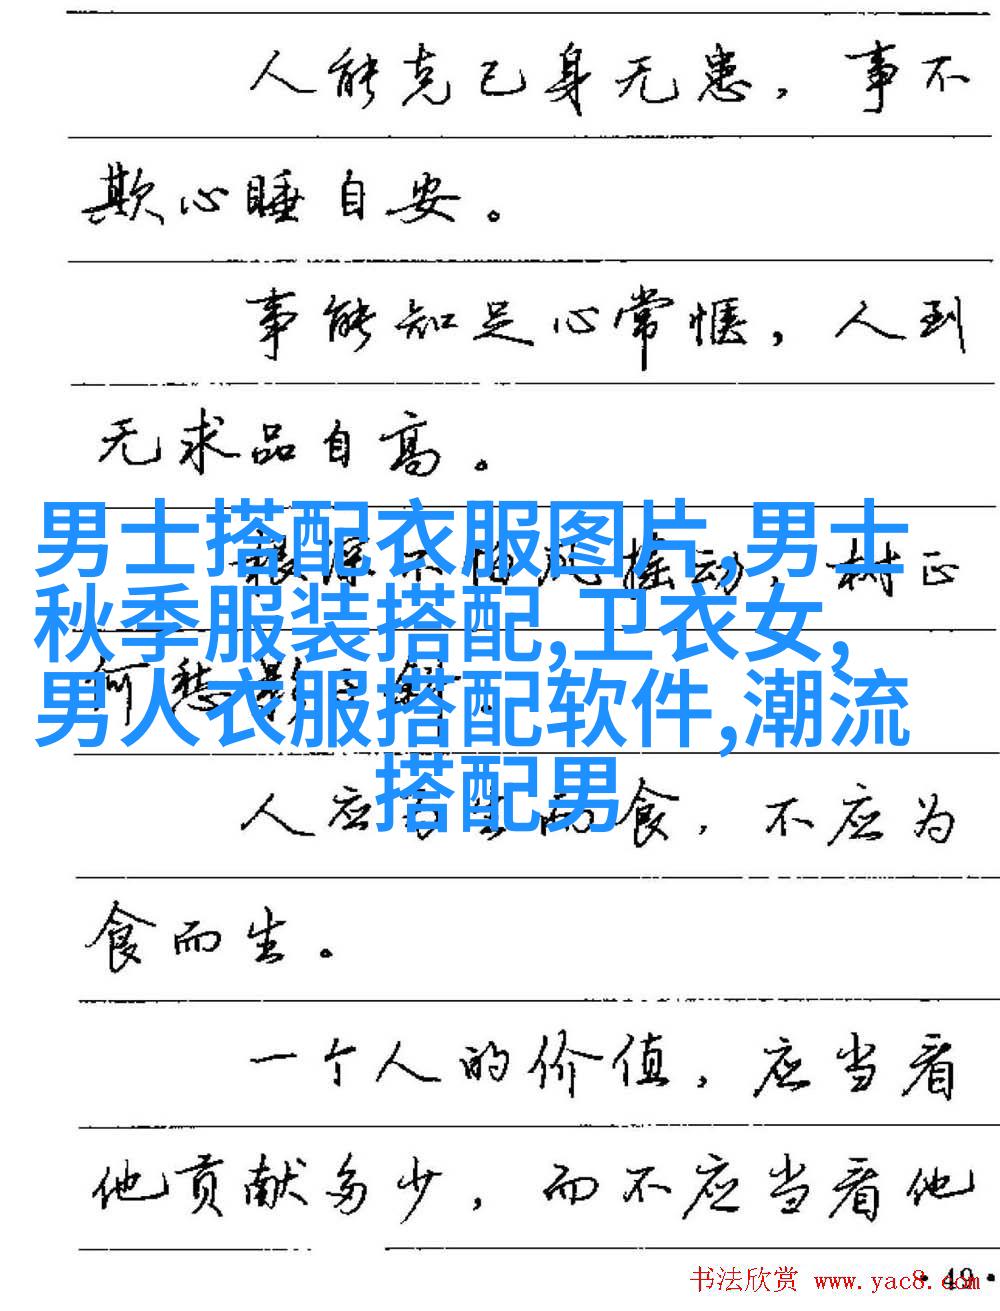 人能克己身无患，事不
欺心睡自安。
事能知足心常惬，人到
无求品自高。
男士搭配衣服图片,男士
根深不怕风摇动，树正
秋季服装搭配,卫衣女,
何愁影斜。
男人衣服搭配软件,潮流
搭配男
人应为生而食，不应为
食而生。
一个人的价值，应当看
他贡献多少，而不应当看他
·49·
书法欣赏 www.yac8.com